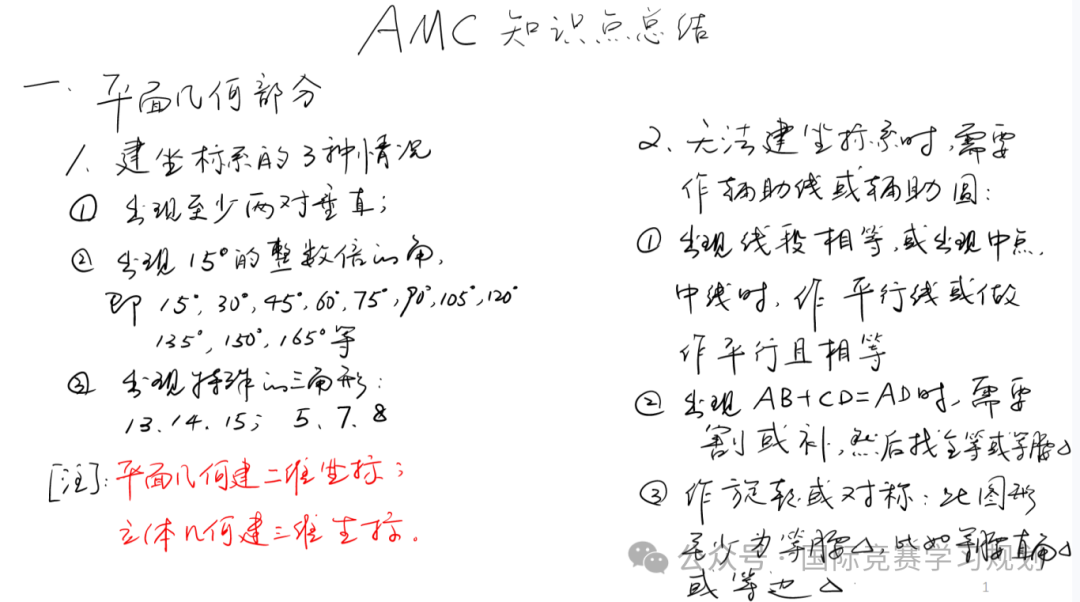 AMC 知识点总结
一. 平面几何部分
1. 建坐标系的3种情况
① 出现至少两对垂直；
② 出现15°的整数倍的角,
即 15°, 30°, 45°, 60°, 75°, 90°, 105°, 120°
135°, 150°, 165°等
③ 出现特殊的三角形：
13. 14. 15； 5. 7. 8
[注]: 平面几何建二维坐标；
立体几何建三维坐标.
2. 无法建坐标系时, 需要
作辅助线或辅助圆：
① 出现线段相等, 或出现中点.
中线时, 作 平行线或做
作平行且相等
② 出现 AB+CD=AD时, 需要
割或补, 然后找全等或等腰△
③ 作旋转或对称：此图形
至少为等腰△, 比如等腰直角△
或等边△
公众号·国际竞赛学习规划
1